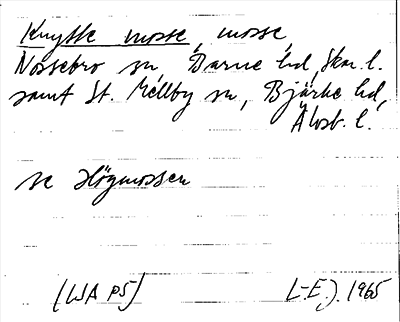 Knytte mosse, mosse,
Nossebro sn, Barne hd, Skar. l.
samt St. Mellby sn, Bjärke hd,
Älvsb. l.
se Högmossen
(WA P5) L-E. J. 1965